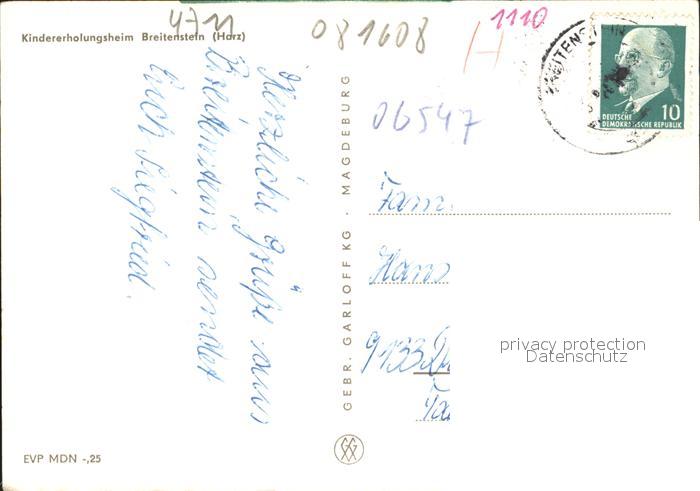 4711
081608
1110
H
Kindererholungsheim Breitenstein (Harz)
06547
BREITENSTEIN
DEUTSCHE
DEMOKRATISCHE REPUBLIK
10
Herzliche Grüße aus
Breitenstein sendet
Euch Siegfried.
GEBR. GARLOFF KG · MAGDEBURG
Fam.
Hans
9133
privacy protection
Datenschutz
EVP MDN -,25